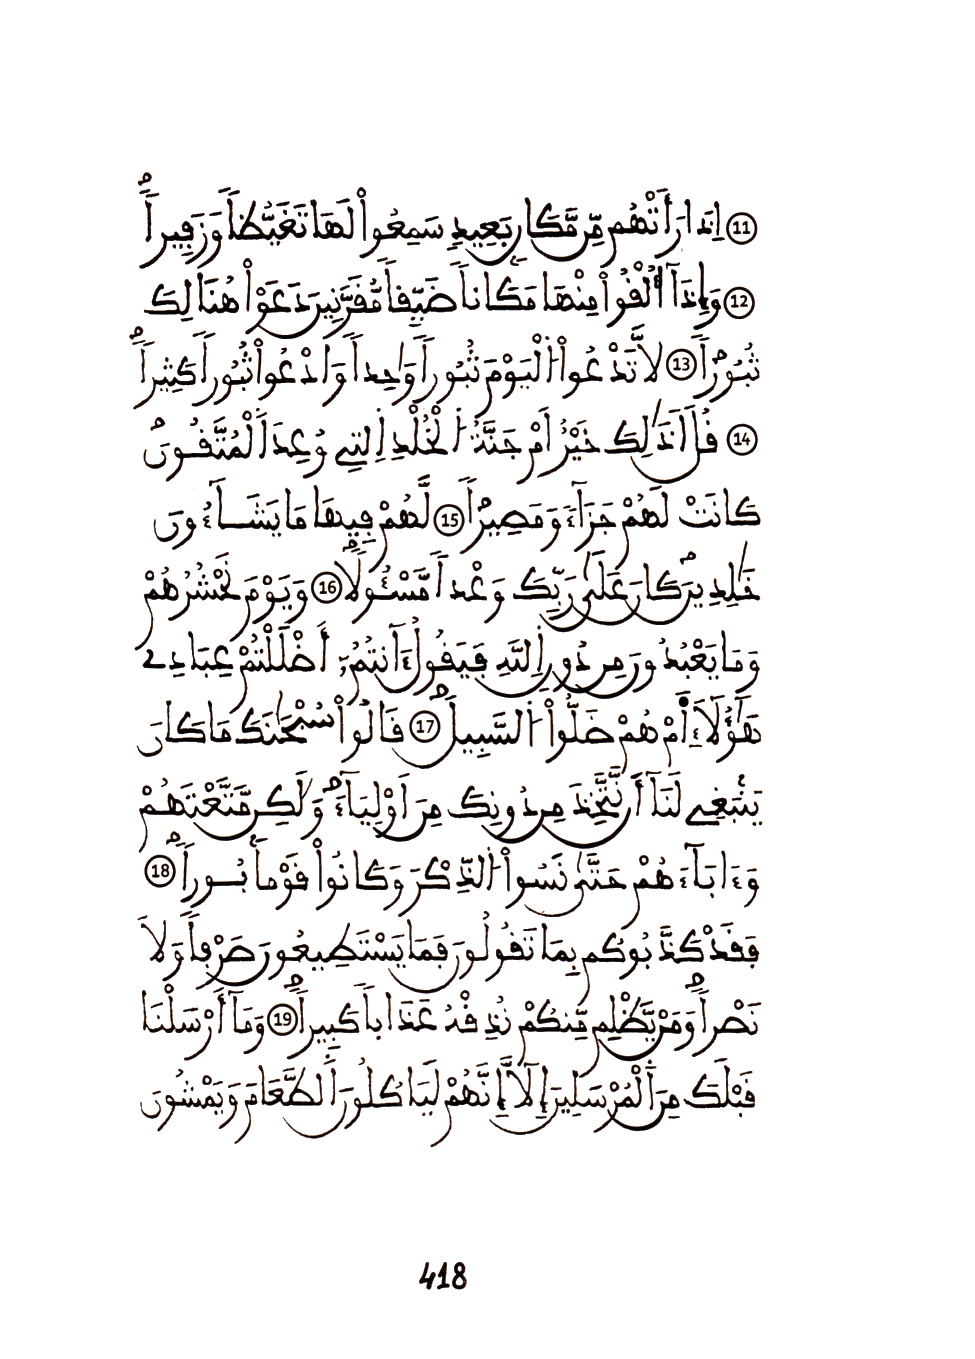 (11) إِذَا رَأَتْهُم مِّن مَّكَانٍ بَعِيدٍ سَمِعُواْ لَهَا تَغَيُّظاً وَزَفِيراً
(12) وَإِذَآ أُلْقُواْ مِنْهَا مَكَاناً ضَيِّقاً مُّقَرَّنِينَ دَعَوْاْ هُنَالِكَ
ثُبُوراً (13) لَّا تَدْعُواْ اُلْيَوْمَ ثُبُوراً وَٰحِداً وَادْعُواْ ثُبُوراً كَثِيراً
(14) قُلَ اَذَٰلِكَ خَيْرٌ أَمْ جَنَّةُ اُلْخُلْدِ اِلتِي وُعِدَ اَلْمُتَّقُونَ
كَانَتْ لَهُمْ جَزَآءً وَمَصِيراً (15) لَّهُمْ فِيهَا مَا يَشَآءُونَ
خَٰلِدِينَ كَانَ عَلَىٰ رَبِّكَ وَعْداً مَّسْـُٔولاً (16) وَيَوْمَ نَحْشُرُهُمْ
وَمَا يَعْبُدُونَ مِن دُونِ اِللَّهِ فَيَقُولُ ءَآنتُمُۥٓ أَضْلَلْتُمْ عِبَادِے
هَٰٓؤُلَآءِ أَمْ هُمْ ضَلُّواْ اُلسَّبِيلَ (17) قَالُواْ سُبْحَٰنَكَ مَا كَانَ
يَنۢبَغِے لَنَآ أَن نَّتَّخِذَ مِن دُونِكَ مِنَ اَوْلِيَآءَ وَلَٰكِن مَّتَّعْتَهُمْ
وَءَابَآءَهُمْ حَتَّىٰ نَسُواْ اُلذِّكْرَ وَكَانُواْ قَوْماَۢ بُوراً (18)
فَقَدْ كَذَّبُوكُم بِمَا تَقُولُونَ فَمَا يَسْتَطِيعُونَ صَرْفاً وَلَا
نَصْراً وَمَنْ يَّظْلِم مِّنكُمْ نُذِقْهُ عَذَاباً كَبِيراً (19) وَمَآ أَرْسَلْنَا
قَبْلَكَ مِنَ اَلْمُرْسَلِينَ إِلَّآ إِنَّهُمْ لَيَاكُلُونَ اَلطَّعَامَ وَيَمْشُونَ
418